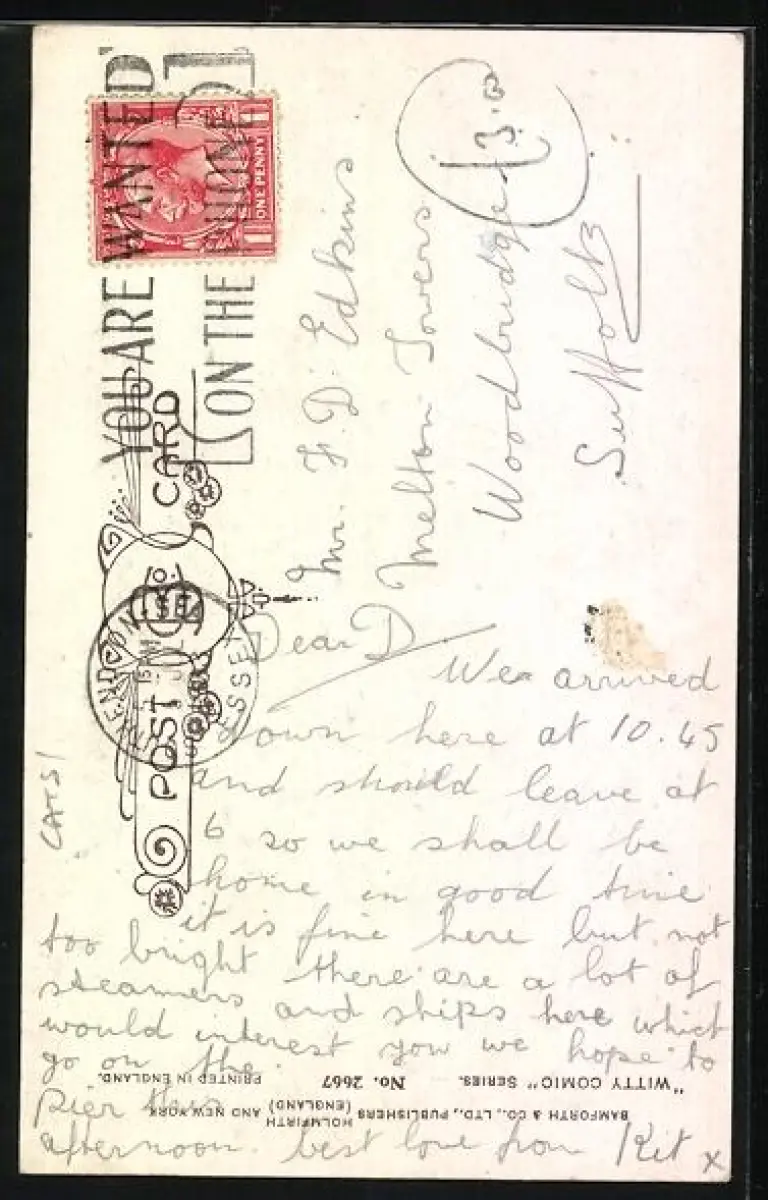 YOU ARE WANTED
ON THE PHONE
ONE PENNY
POST CARD
ESSEX
£3.0
Mr. F. D. Edkins
Melton Towers
Woodbridge
Suffolk
Dear D
We arrived
down here at 10.45
and should leave at
6 so we shall be
home in good time
it is fine here but not
too bright there are a lot of
steamers and ships here which
would interest you we hope to
go on the
Pier this
afternoon. best love from Kit x
CATS!
BAMFORTH & CO., LTD., PUBLISHERS HOLMFIRTH (ENGLAND) AND NEW YORK
"WITTY COMIC" SERIES. No. 2667 PRINTED IN ENGLAND.